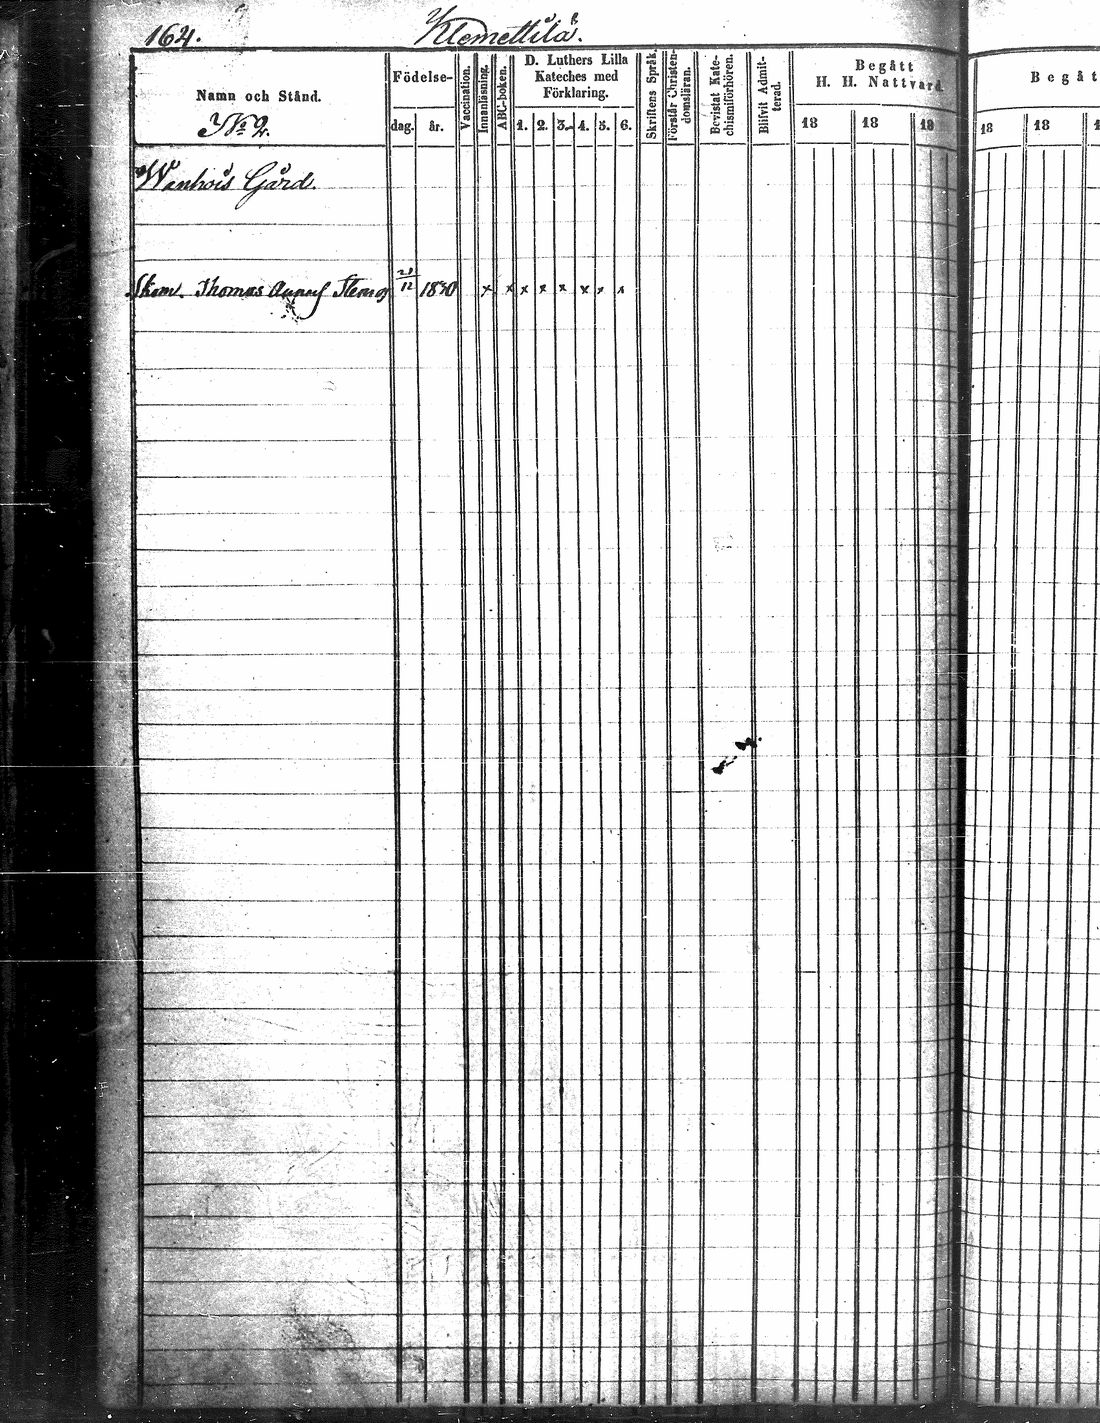 164. Klemettilä.
Namn och Stånd.
Födelse-
dag. år.
Vaccination.
Innanläsning.
ABC-boken.
D. Luthers Lilla
Kateches med
Förklaring.
1. 2. 3. 4. 5. 6.
Skriftens Språk.
Förstår Christen-
domsläran.
Bevistat Kate-
chismiförhören.
Blifvit Admit-
terad.
Begått
H. H. Nattvard.
18 18 18
Begåt
18 18 1
No 2.
Wanhois Gård.
Thomas 21/12 1830 x x x x x x x x